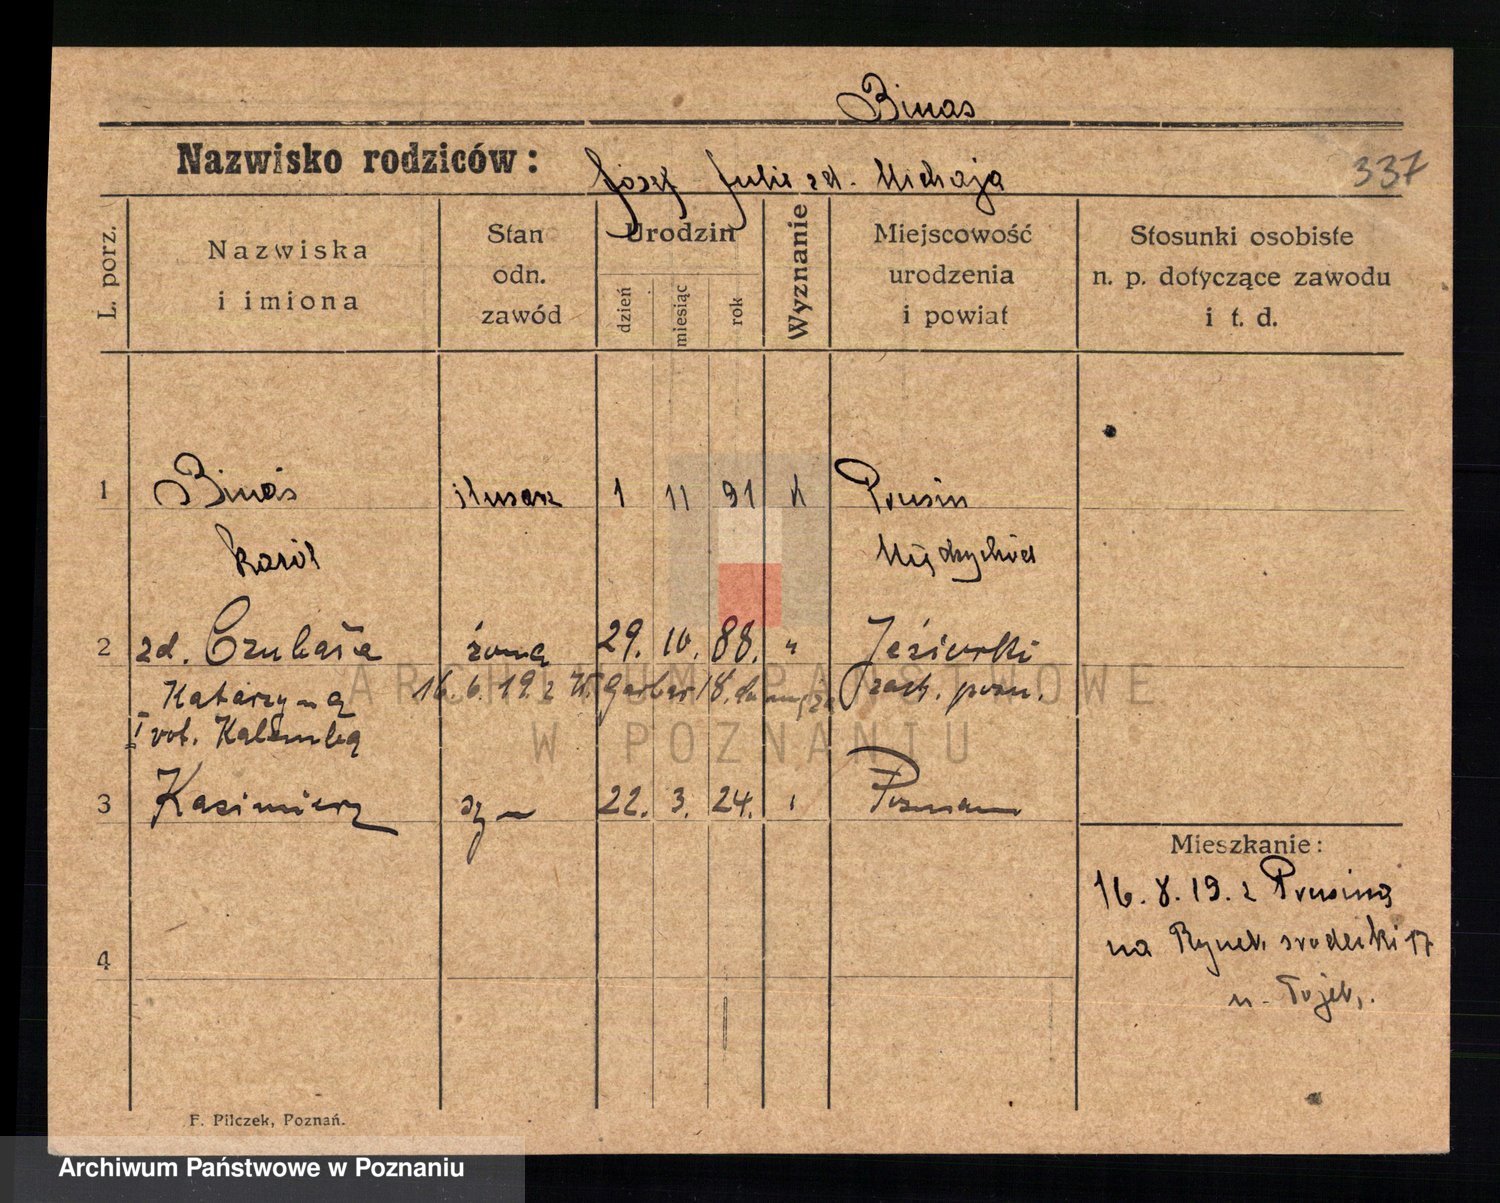 Binas
Nazwisko rodziców: Józef Julie zd. Michaja
337
L. porz.
Nazwiska
i imiona
Stan
odn.
zawód
Urodzin
dzień
miesiąc
rok
Wyznanie
Miejscowość
urodzenia
i powiat
Stosunki osobiste
n. p. dotyczące zawodu
i t. d.
1 Binaś ślusarz 1 11 91 k Prusim
Karól Międzychód
2 zd. Czubała żona 29. 10. 88. " Jeziorki
Katarzyna 16. 6. 19. z W. Garbar 18. do męża zach. pozn.
I vot. Kalemba
3 Kazimierz syn 22. 3. 24. Poznań
4
Mieszkanie:
16. 8. 19. z Prusima
na Rynek śródecki 17
F. Pilczek, Poznań.
ARCHIWUM PAŃSTWOWE
W POZNANIU
Archiwum Państwowe w Poznaniu